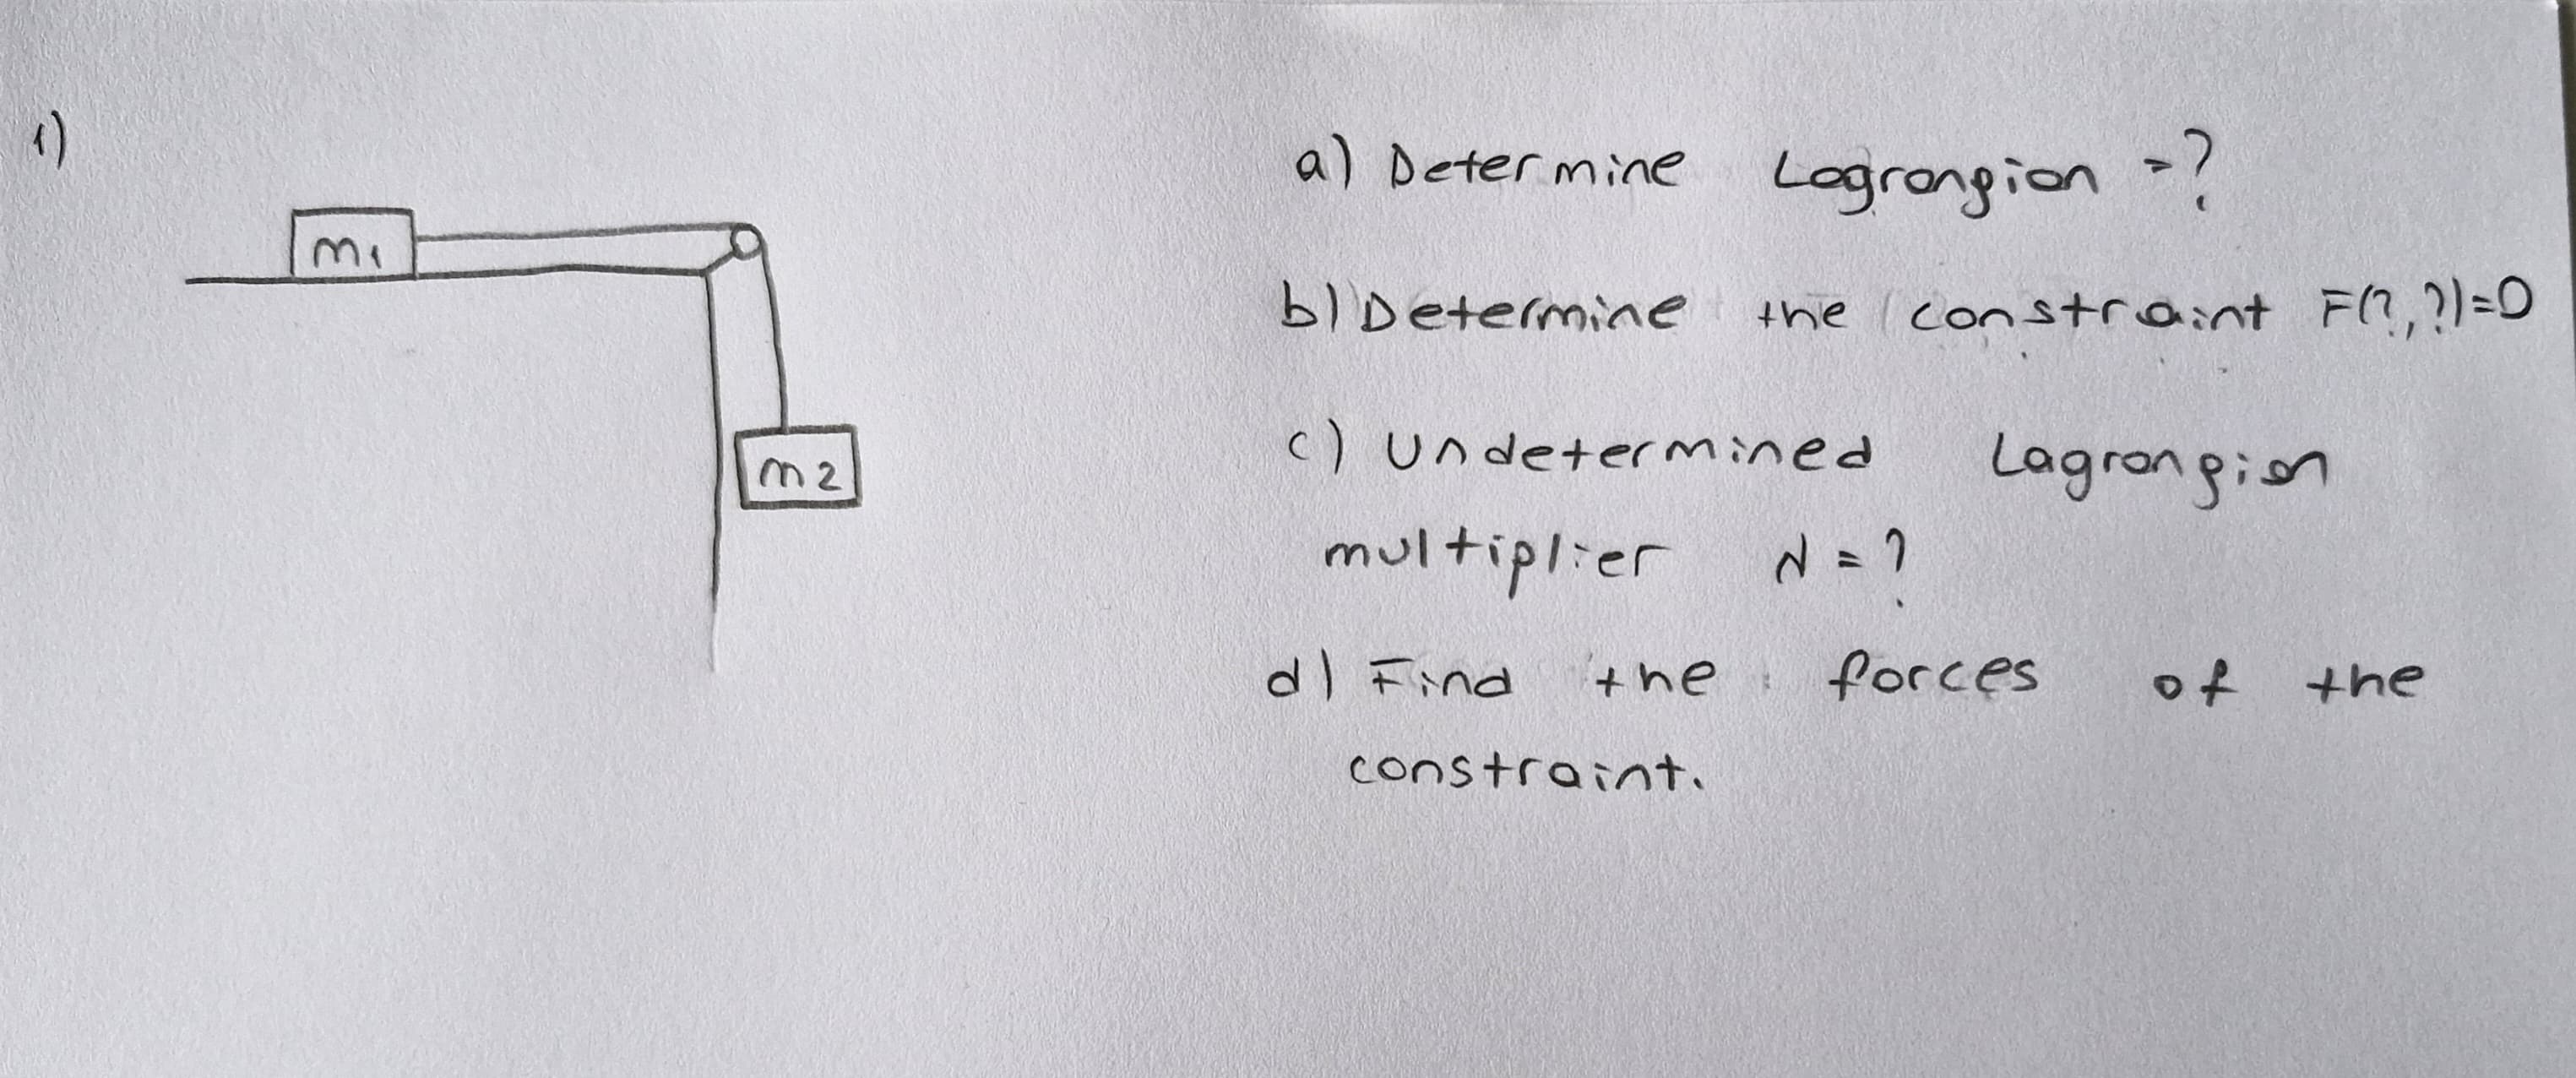 1)
a) Determine Lagrangian =?
m1
b) Determine the constraint F(?,?)=0
c) Undetermined Lagrangian
m2
multiplier λ = ?
d) Find the forces of the
constraint.